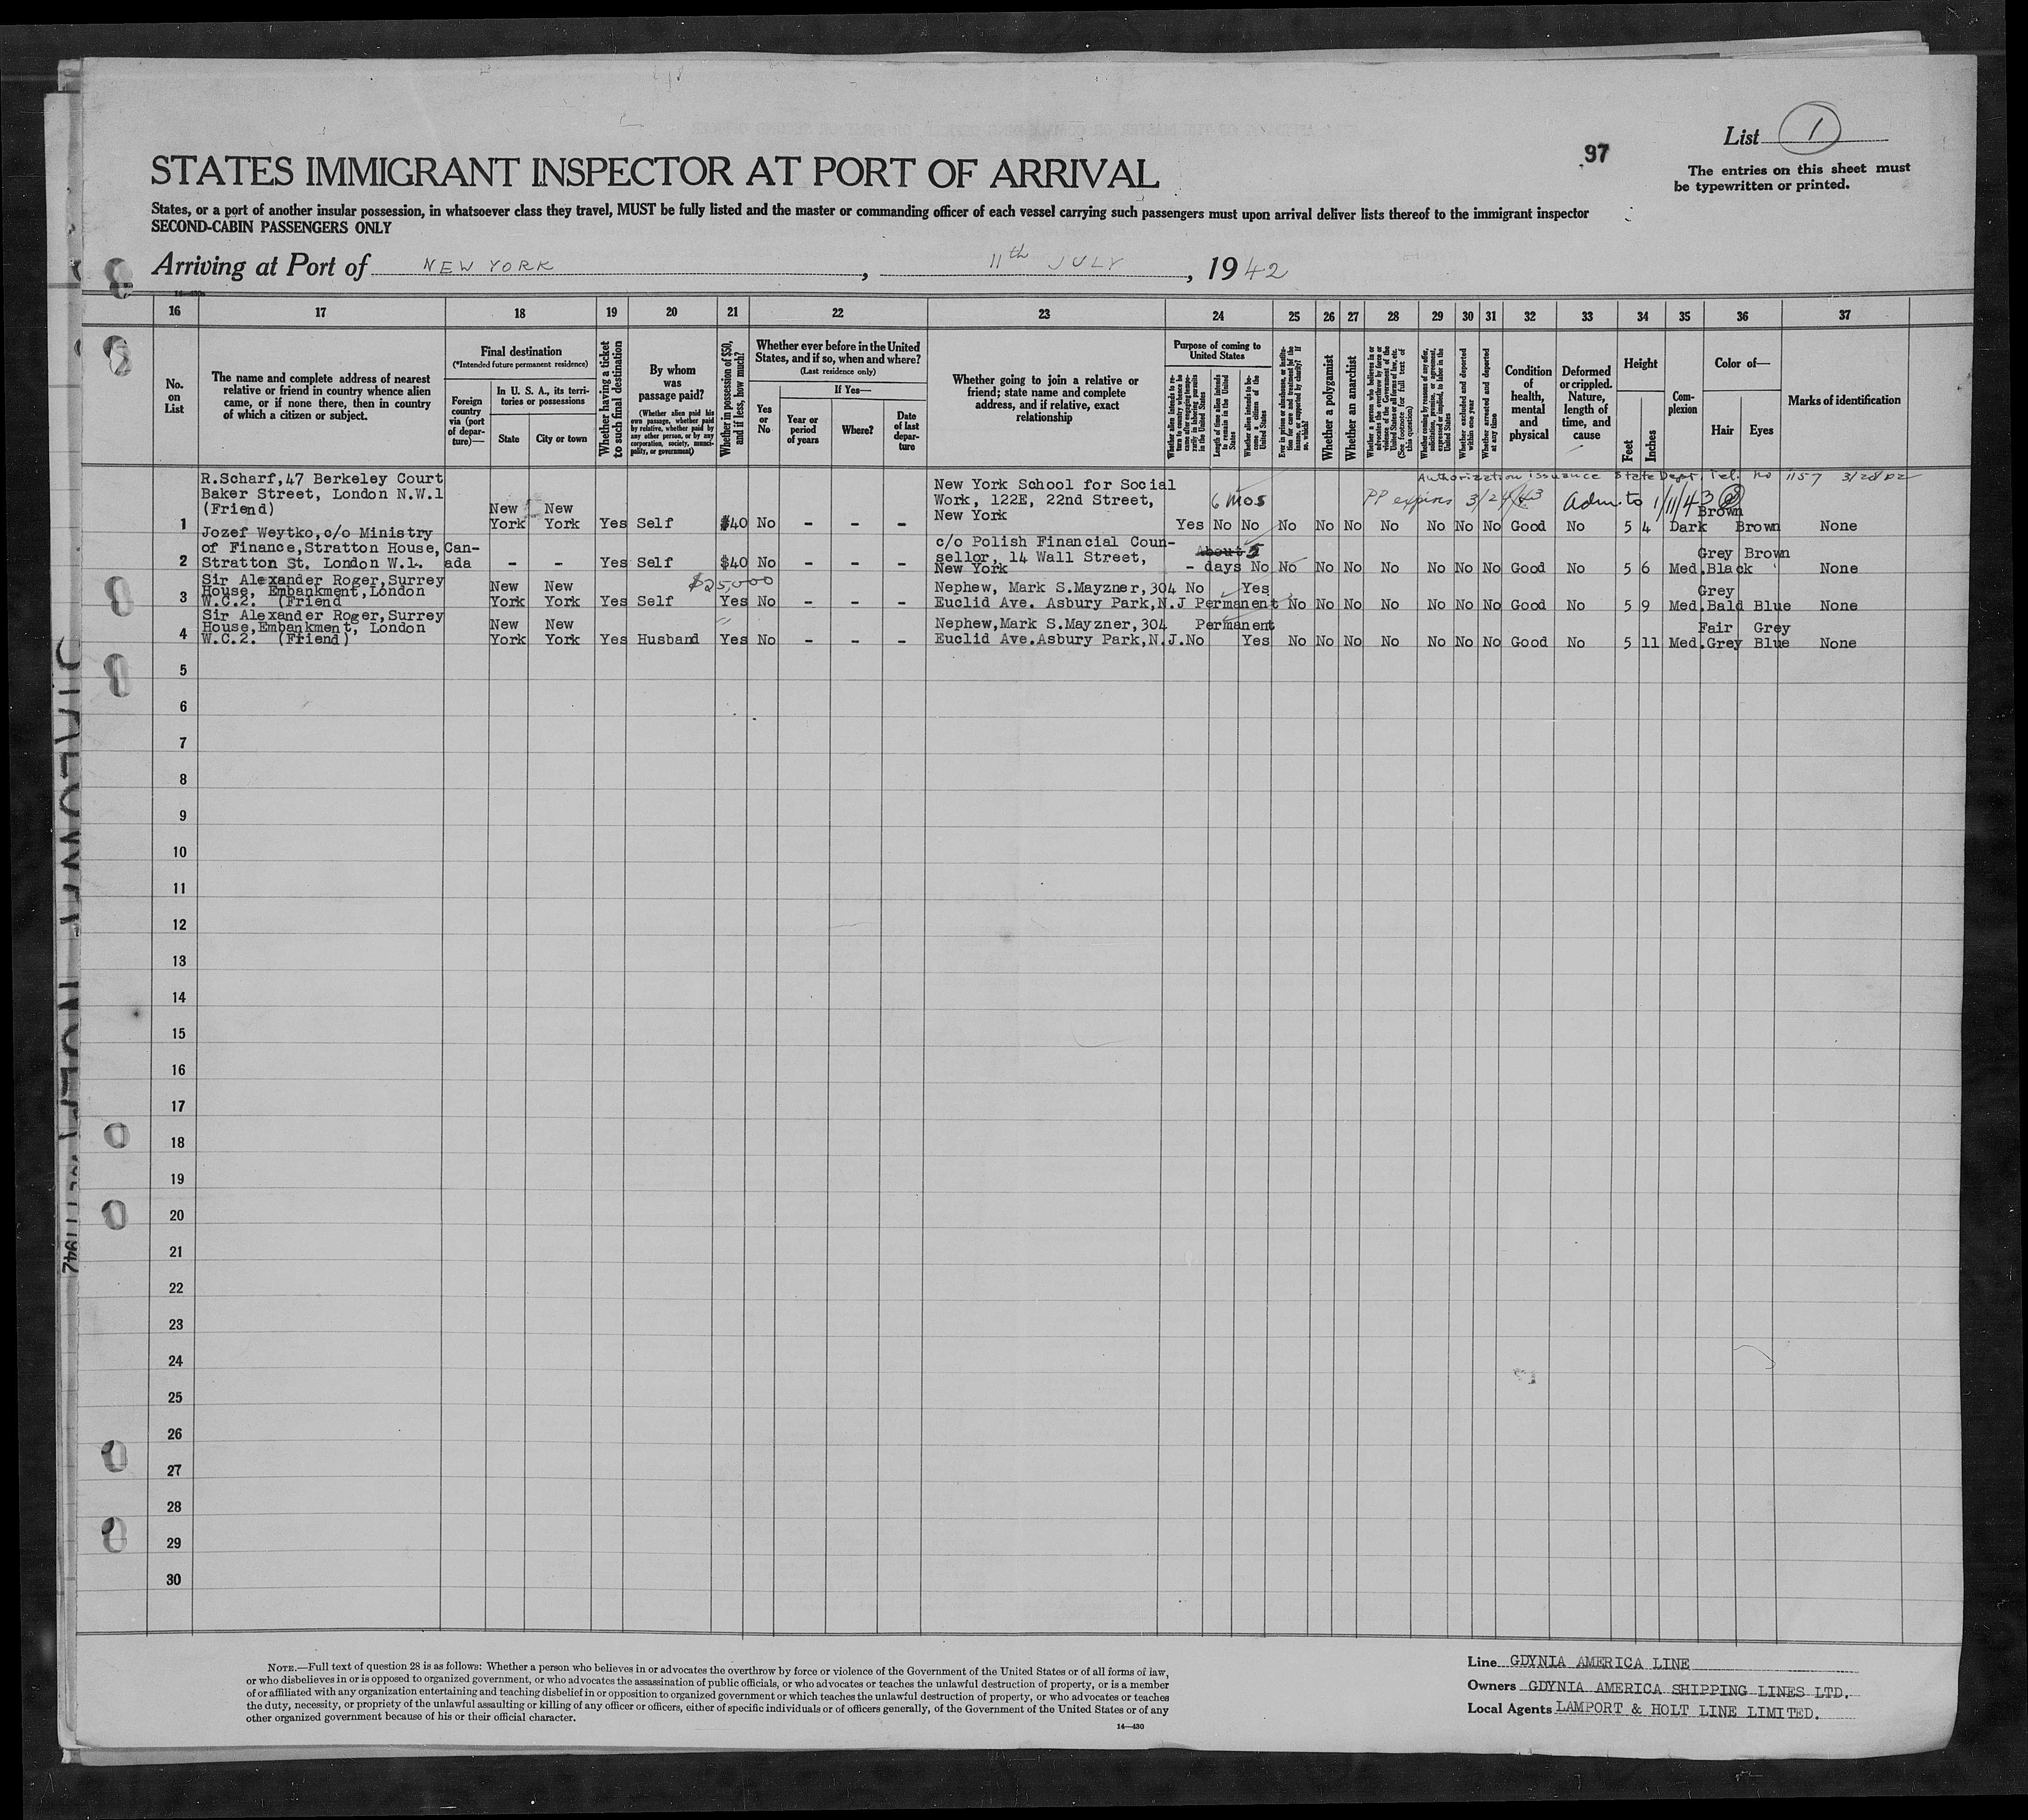 List 1
97
The entries on this sheet must
be typewritten or printed.
STATES IMMIGRANT INSPECTOR AT PORT OF ARRIVAL
States, or a port of another insular possession, in whatsoever class they travel, MUST be fully listed and the master or commanding officer of each vessel carrying such passengers must upon arrival deliver lists thereof to the immigrant inspector
SECOND-CABIN PASSENGERS ONLY
Arriving at Port of NEW YORK, 11th JULY, 1942
16 17 18 19 20 21 22 23 24 25 26 27 28 29 30 31 32 33 34 35 36 37
No.
on
List
The name and complete address of nearest
relative or friend in country whence alien
came, or if none there, then in country
of which a citizen or subject.
Final destination
(*Intended future permanent residence)
Foreign
country
via (port
of depar-
ture)—
In U. S. A., its terri-
tories or possessions
State
City or town
Whether having a ticket
to such final destination
By whom
was
passage paid?
(Whether alien paid his
own passage, whether paid
by relative, whether paid by
any other person, or by any
corporation, society, munici-
pality, or government)
Whether in possession of $50,
and if less, how much?
Whether ever before in the United
States, and if so, when and where?
(Last residence only)
Yes
or
No
If Yes—
Year or
period
of years
Where?
Date
of last
depar-
ture
Whether going to join a relative or
friend; state name and complete
address, and if relative, exact
relationship
Purpose of coming to
United States
Whether alien intends to re-
turn to country whence he
came after engaging tempo-
rarily in laboring pursuits
in the United States
Length of time alien intends
to remain in the United
States
Whether alien intends to be-
come a citizen of the
United States
Ever in prison or almshouse, or institu-
tion for care and treatment of the
insane, or supported by charity? If
so, which?
Whether a polygamist
Whether an anarchist
Whether a person who believes in or
advocates the overthrow by force or
violence of the Government of the
United States or all forms of law, etc.
(See footnote for full text of
this question)
Whether coming by reasons of any offer,
solicitation, promise, or agreement,
expressed or implied, to labor in the
United States
Whether excluded and deported
within one year
Whether arrested and deported
at any time
Condition
of
health,
mental
and
physical
Deformed
or crippled.
Nature,
length of
time, and
cause
Height
Feet
Inches
Com-
plexion
Color of—
Hair
Eyes
Marks of identification
Authorization issuance State Dept. Tel. No 1157
6 mos
PP expires
Adm to 1/11/43
R.Scharf,47 Berkeley Court
Baker Street, London N.W.1
(Friend)
New York School for Social
Work, 122E, 22nd Street,
New York
1 New York New York Yes Self $40 No - - - Yes No No No No No No No No No Good No 5 4 Dark Brown Brown None
Jozef Weytko,c/o Ministry
of Finance,Stratton House,
Stratton St. London W.1.
c/o Polish Financial Coun-
sellor, 14 Wall Street,
New York
About 5
2 Canada - - Yes Self $40 No - - - - days No No No No No No No No Good No 5 6 Med. Grey Black Brown None
Sir Alexander Roger,Surrey
House, Embankment,London
W.C.2. (Friend
$25,000
Nephew, Mark S.Mayzner,304
Euclid Ave. Asbury Park,N.J
3 New York New York Yes Self Yes No - - - No Permanent Yes No No No No No No No Good No 5 9 Med. Grey Bald Blue None
Sir Alexander Roger,Surrey
House,Embankment, London
W.C.2. (Friend)
Nephew,Mark S.Mayzner,304
Euclid Ave.Asbury Park,N.J.
4 New York New York Yes Husband Yes No - - - No Permanent Yes No No No No No No No Good No 5 11 Med. Fair Grey Grey Blue None
5
6
7
8
9
10
11
12
13
14
15
16
17
18
19
20
21
22
23
24
25
26
27
28
29
30
NOTE.—Full text of question 28 is as follows: Whether a person who believes in or advocates the overthrow by force or violence of the Government of the United States or of all forms of law,
or who disbelieves in or is opposed to organized government, or who advocates the assassination of public officials, or who advocates or teaches the unlawful destruction of property, or is a member
of or affiliated with any organization entertaining and teaching disbelief in or opposition to organized government or which teaches the unlawful destruction of property, or who advocates or teaches
the duty, necessity, or propriety of the unlawful assaulting or killing of any officer or officers, either of specific individuals or of officers generally, of the Government of the United States or of any
other organized government because of his or their official character.
14—430
Line GDYNIA AMERICA LINE
Owners GDYNIA AMERICA SHIPPING LINES LTD.
Local Agents LAMPORT & HOLT LINE LIMITED.